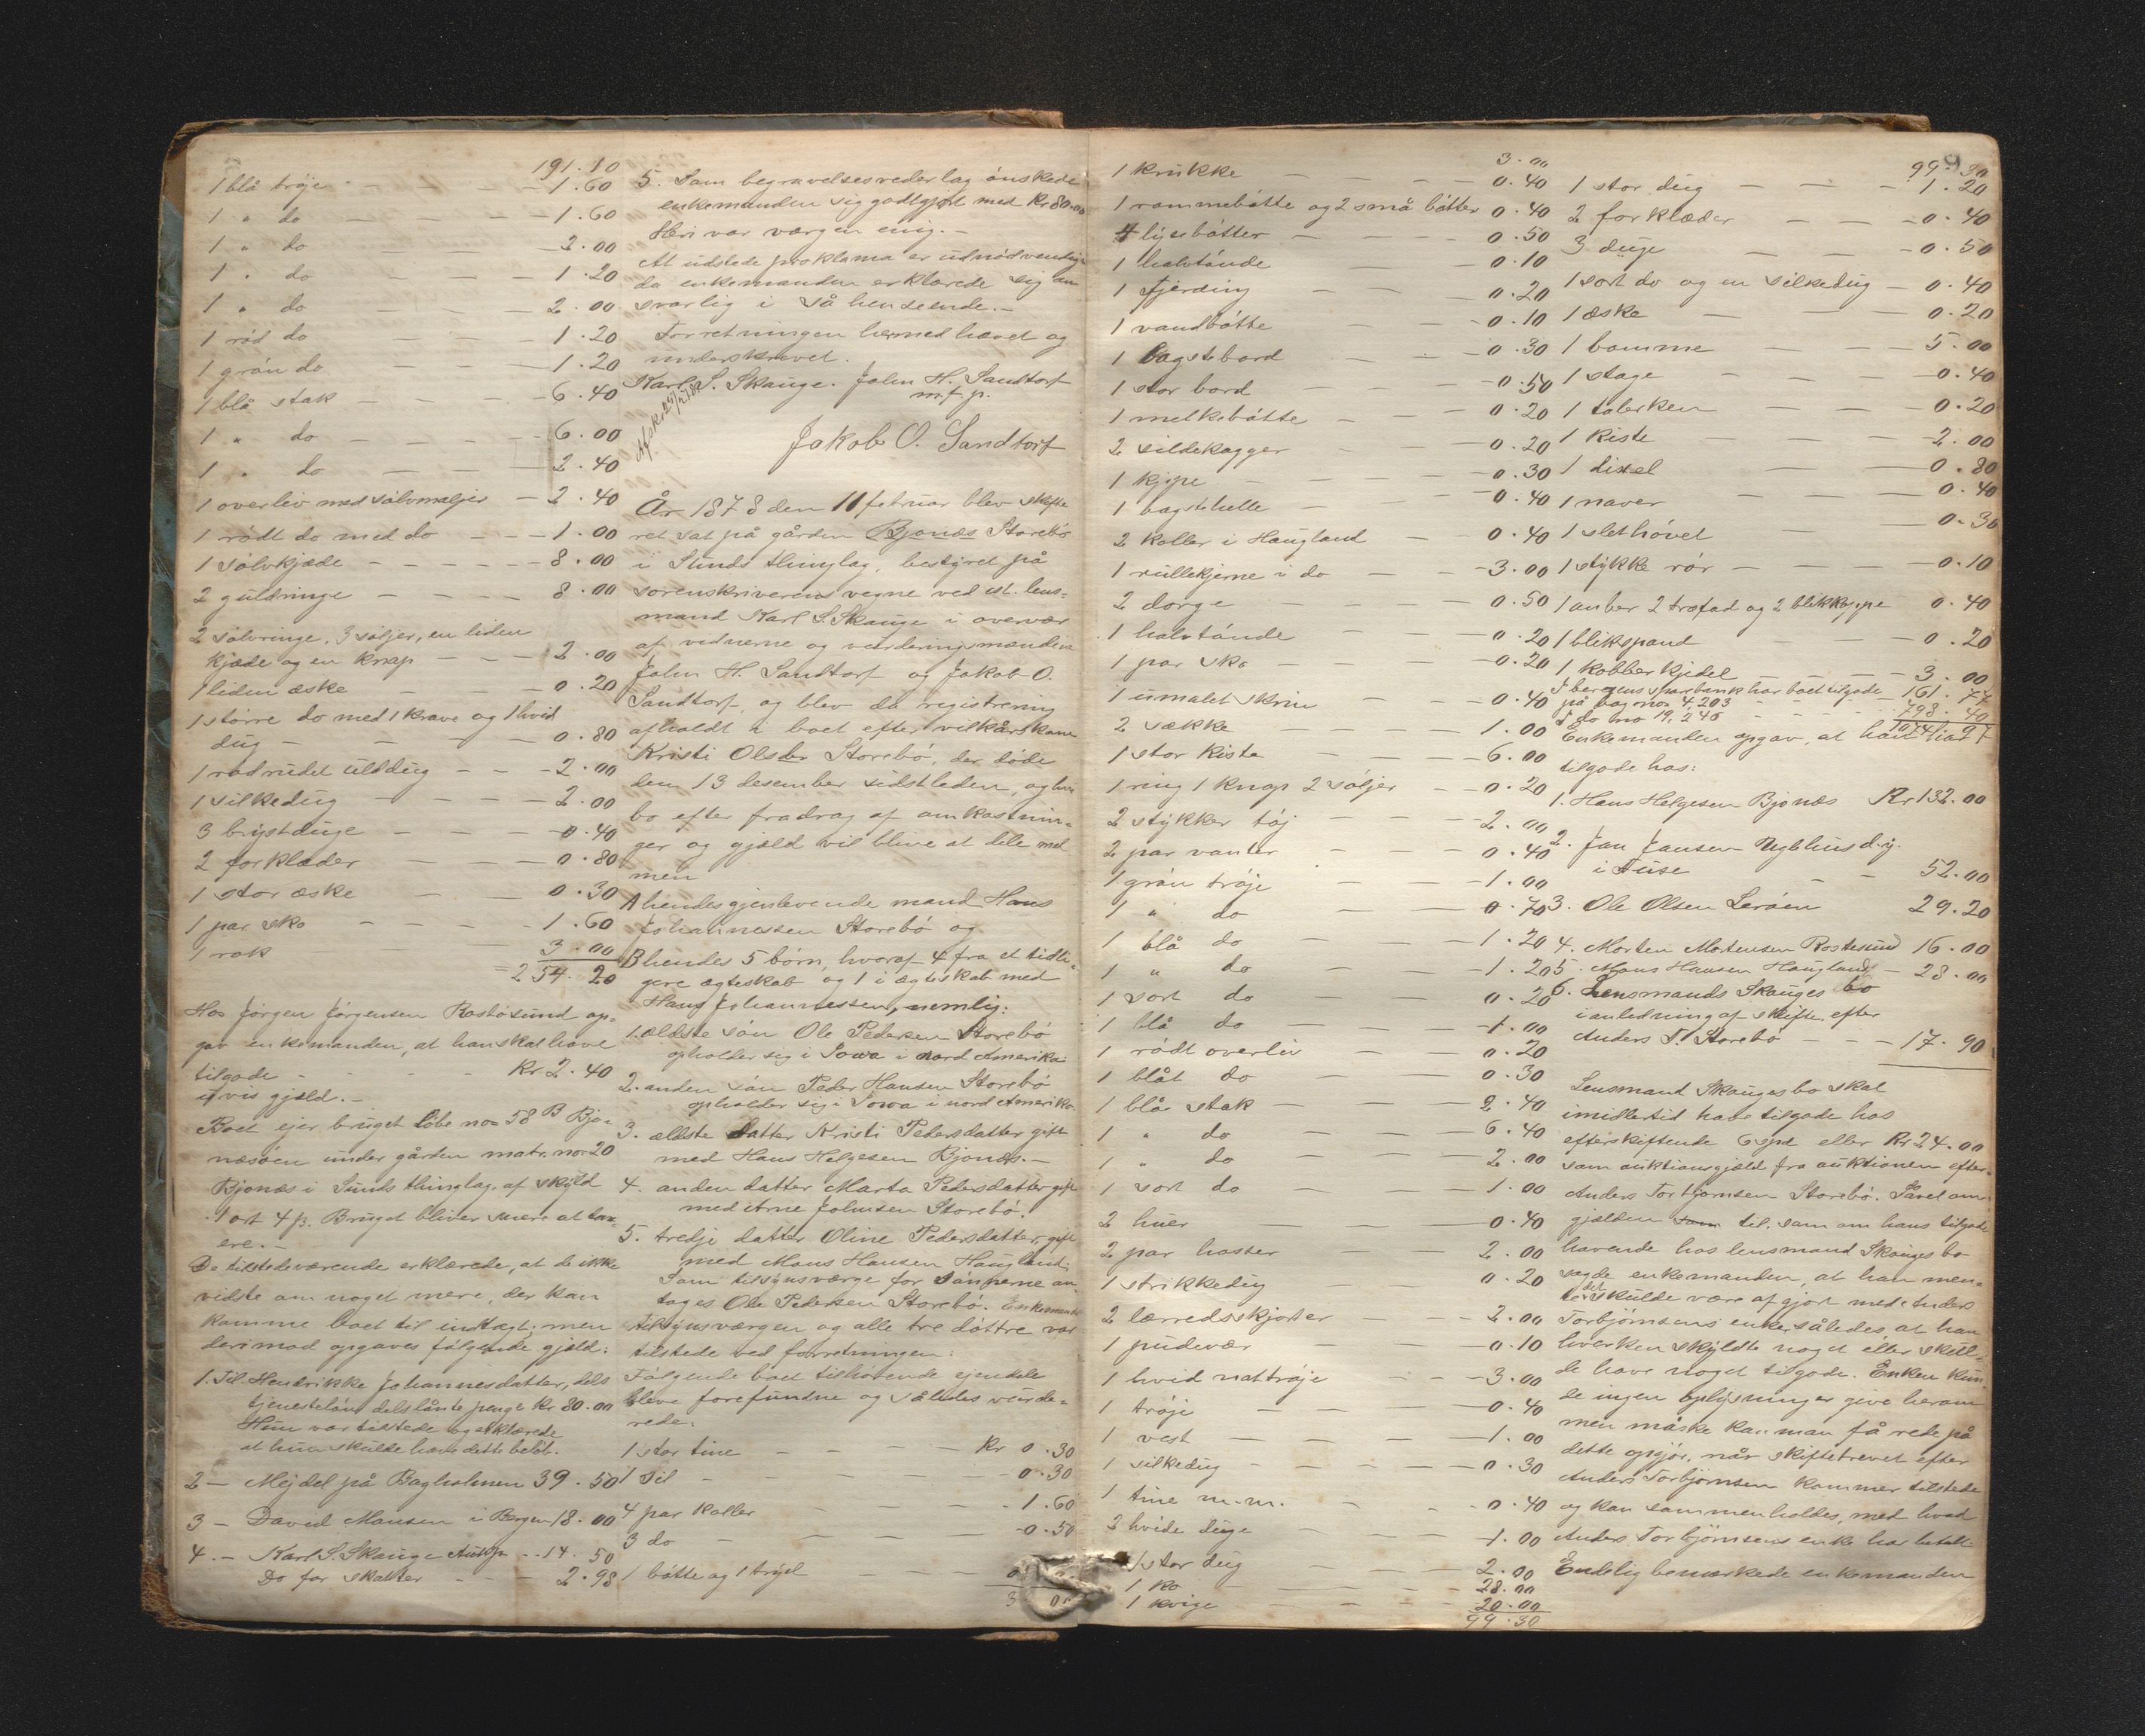 191.10
1 blå trøje - - - 1.60
1 " do - - - 1.60
1 " do - - - 2.00
1 " do - - - 1.20
1 " do - - - 2.00
1 rød do - - - 1.20
1 grøn do - - - 1.20
1 blå stak - - - 6.40
1 " do - - - 6.00
1 " do - - - 2.40
1 overliv med sølvmaljer - 2.40
1 rødt do med do - - 1.00
1 sølvkjæde - - - 8.00
2 guldringe - - - 8.00
2 sølvringe, 3 søljer, en liden
kjæde og en knap - - - 2.00
1 liden æske - - - 0.20
1 større do med 1 krave og 1 hvid
dug - - - 0.80
1 rødrudet ulddug - - 2.00
1 silkedug - - - 2.00
3 brystduge - - - 0.40
2 forklæder - - - 0.80
1 stor æske - - 0.30
1 par sko - - - 1.60
1 rok - - - 3.00
254.20
Hos Jørgen Jørgensen Rostøsund op-
gav enkemanden, at han skal have
tilgode - - - Kr 2.40
uvis gjæld.-
Boet ejer bruget løbe no 58 B Bjo-
næsøen under gården matr. no 20
Bjonæs i Sunds thinglag, af skyld
1 ort 4 β. Bruget bliver mere at tax-
ere.-
De tilstedeværende erklærede, at de ikke
vidste om noget mere, der kan
komme boet til indtægt, men
derimod opgaves følgende gjæld:
1. Til Hendrikke Johannesdatter, dels
tjenesteløn dels lånte penge Kr 80.00
Hun var tilstede og erklærede
at hun skulde have dette beløb.
2 - Mejdel på Bagholmen 39.50
3 - David Monsen i Bergen 18.00
4.- Karl S. Skauge - 14.50
Do for skatter - - - 2.98
5. Som begravelsesvederlag ønskede
enkemanden sig godtgjort med Kr 80.00
Heri var værgen enig.-
At udstede proklama er unødvendigt
da enkemanden erklærede sig an-
svarlig i så henseende.-
Forretningen hermed hævet og
underskrevet.
Karl S. Skauge. John H. Sandtorf
m.f.p.
Jakob O. Sandtorf
År 1878 den 11 februar blev skifte
ret sat på gården Bjonæs Storebø
i Sunds thinglag, bestyret på
sorenskriverens vegne ved cst. lens-
mand Karl S. Skauge i overvær
af vidnerne og vurderingsmændene
John H. Sandtorf og Jakob O.
Sandtorf, og blev da registrering
afholdt i boet efter vilkårskone
Kristi Olsdr Storebø, der døde
den 13 desember sidstleden, og hvis
bo efter fradrag af omkostnin-
ger og gjæld vil blive at dele mel
men
A hendes gjenlevende mand Hans
Johannessen Storebø og
B hendes 5 børn, hvoraf 4 fra et tidli-
gere ægteskab og 1 i ægteskab med
Hans Johannessen, nemlig:
1. ældste søn Ole Pedersen Storebø
opholder sig i Iowa i nord Amerika
2. anden søn Peder Hansen Storebø
opholder sig i Iowa i nord Amerika
3. ældste datter Kristi Pedersdatter gift
med Hans Helgesen Bjonæs.-
4. anden datter Marta Pedersdatter gift
med Arne Johnsen Storebø.
5. tredje datter Oline Pedersdatter, gift
med Mons Hansen Haugland.
Som tilsynsværge for sønnerne an-
tages Ole Pedersen Storebø. Enkemanden
tilsynsværgen og alle tre døttre var
tilstede ved forretningen:
Følgende boet tilhørende ejendele
bleve forefundne og således vurde-
rede:
1 stor tine - - - Kr 0.30
1 sil - - - 0.30
4 par koller - - - 1.60
3 do - - - 0.50
1 bøtte og 1 trýel - - -
1 krukke - - - 0.40
3.00
1 rømmebøtte og 2 små bøtter 0.40
4 lysebøtter - - 0.50
1 halvtønde - - 0.10
1 fjerding - - 0.20
1 vandbøtte - - 0.10
1 bagstebord - - 0.30
1 stor bord - - 0.50
1 melkebøtte - - 0.20
2 sildekagger - - 0.20
1 kjipe - - 0.30
1 bagstehelle - - 0.40
2 koller i Haugland - 0.40
1 rullekjerne i do - - 3.00
2 dorge - - 0.50
1 halvtønde - - 0.20
1 par sko - - 0.20
1 umalet skrin - - 0.40
2 sække - - 1.00
1 stor kiste - - 6.00
1 ring 1 knap 2 søljer - - 0.20
2 stykker tøj - - 2.00
2 par vanter - - 0.40
1 grøn trøje - - 1.00
1 " do - - 0.70
1 blå do - - 1.20
1 " do - - 1.20
1 sort do - - 0.20
1 blå do - - 1.00
1 rødt overliv - - 0.20
1 blåt do - - 0.30
1 blå stak - - 2.40
1 " do - - 6.40
1 " do - - 2.00
1 sort do - - 1.00
2 huer - - 0.40
2 par hoser - - 2.00
1 strikkedug - - 0.20
2 lærredsskjorter - - 2.00
1 pudevær - - 0.10
1 hvid nattrøje - - 3.00
1 trøje - - 0.40
1 vest - - 1.00
1 silkedug - - 0.30
1 tine m.m. - - 0.40
2 hvide duge - - 1.00
1 stor dug - - 2.00
1 ko - - 28.00
1 kvige - - 20.00
99.30
99.30
1 stor dug - - - 1.20
2 forklæder - - 0.40
3 duge - - 0.50
1 sort do og en silkedug - 0.40
1 æske - - 0.20
1 bomme - - 5.00
1 stage - - 0.40
1 talerken - - 0.20
1 kiste - - 2.00
1 dixel - - 0.80
1 naver - - 0.40
1 slethøvel - - 0.30
1 stykke rør - - 0.10
1 anber 2 trøfad og 2 blikkoppe 0.40
1 blikspand - - 0.20
1 kobberkjedel - - 3.00
I bergens sparebank har boet tilgode 161.77
på bog no 4,203
I do no 19,246 - - 798.40
1074.97
Enkemanden opgav, at han har
tilgode hos:
1. Hans Helgesen Bjonæs Kr 132.00
2. Jan Jansen Uglhus d.y.
i Fuse - - 52.00
3. Ole Olsen Lerøen 29.20
4. Morten Mortensen Rostøsund 16.00
5. Mons Hansen Haugland - 28.00
6. Lensmands Skauges bo
i anledning af skifte efter
Anders T. Storebø - - - 17.90
Lensmand Skauges bo skal
imidlertid have tilgode hos
efterskiftende 6 spd eller Kr 24.00
som auktionsgjæld fra auktionen efter
Anders Torbjørnsen Storebø. Såvel om
gjælden som til, som om hans tilgode
havende hos lensmand Skauges bo
sagde enkemanden, at han men-
te det skulde være afgjort med Anders
Torbjørnsens enke, således, at han
hverken skyldte noget eller skul-
de have noget tilgode. Enken kun-
de ingen oplysninger give herom
men måske kan man få rede på
dette opgjør, når skiftebrevet efter
Anders Torbjørnsen kommer tilstede
og kan sammenholdes, med hvad
Anders Torbjørnsens enke har betalt.
Endelig bemærkede enkemanden